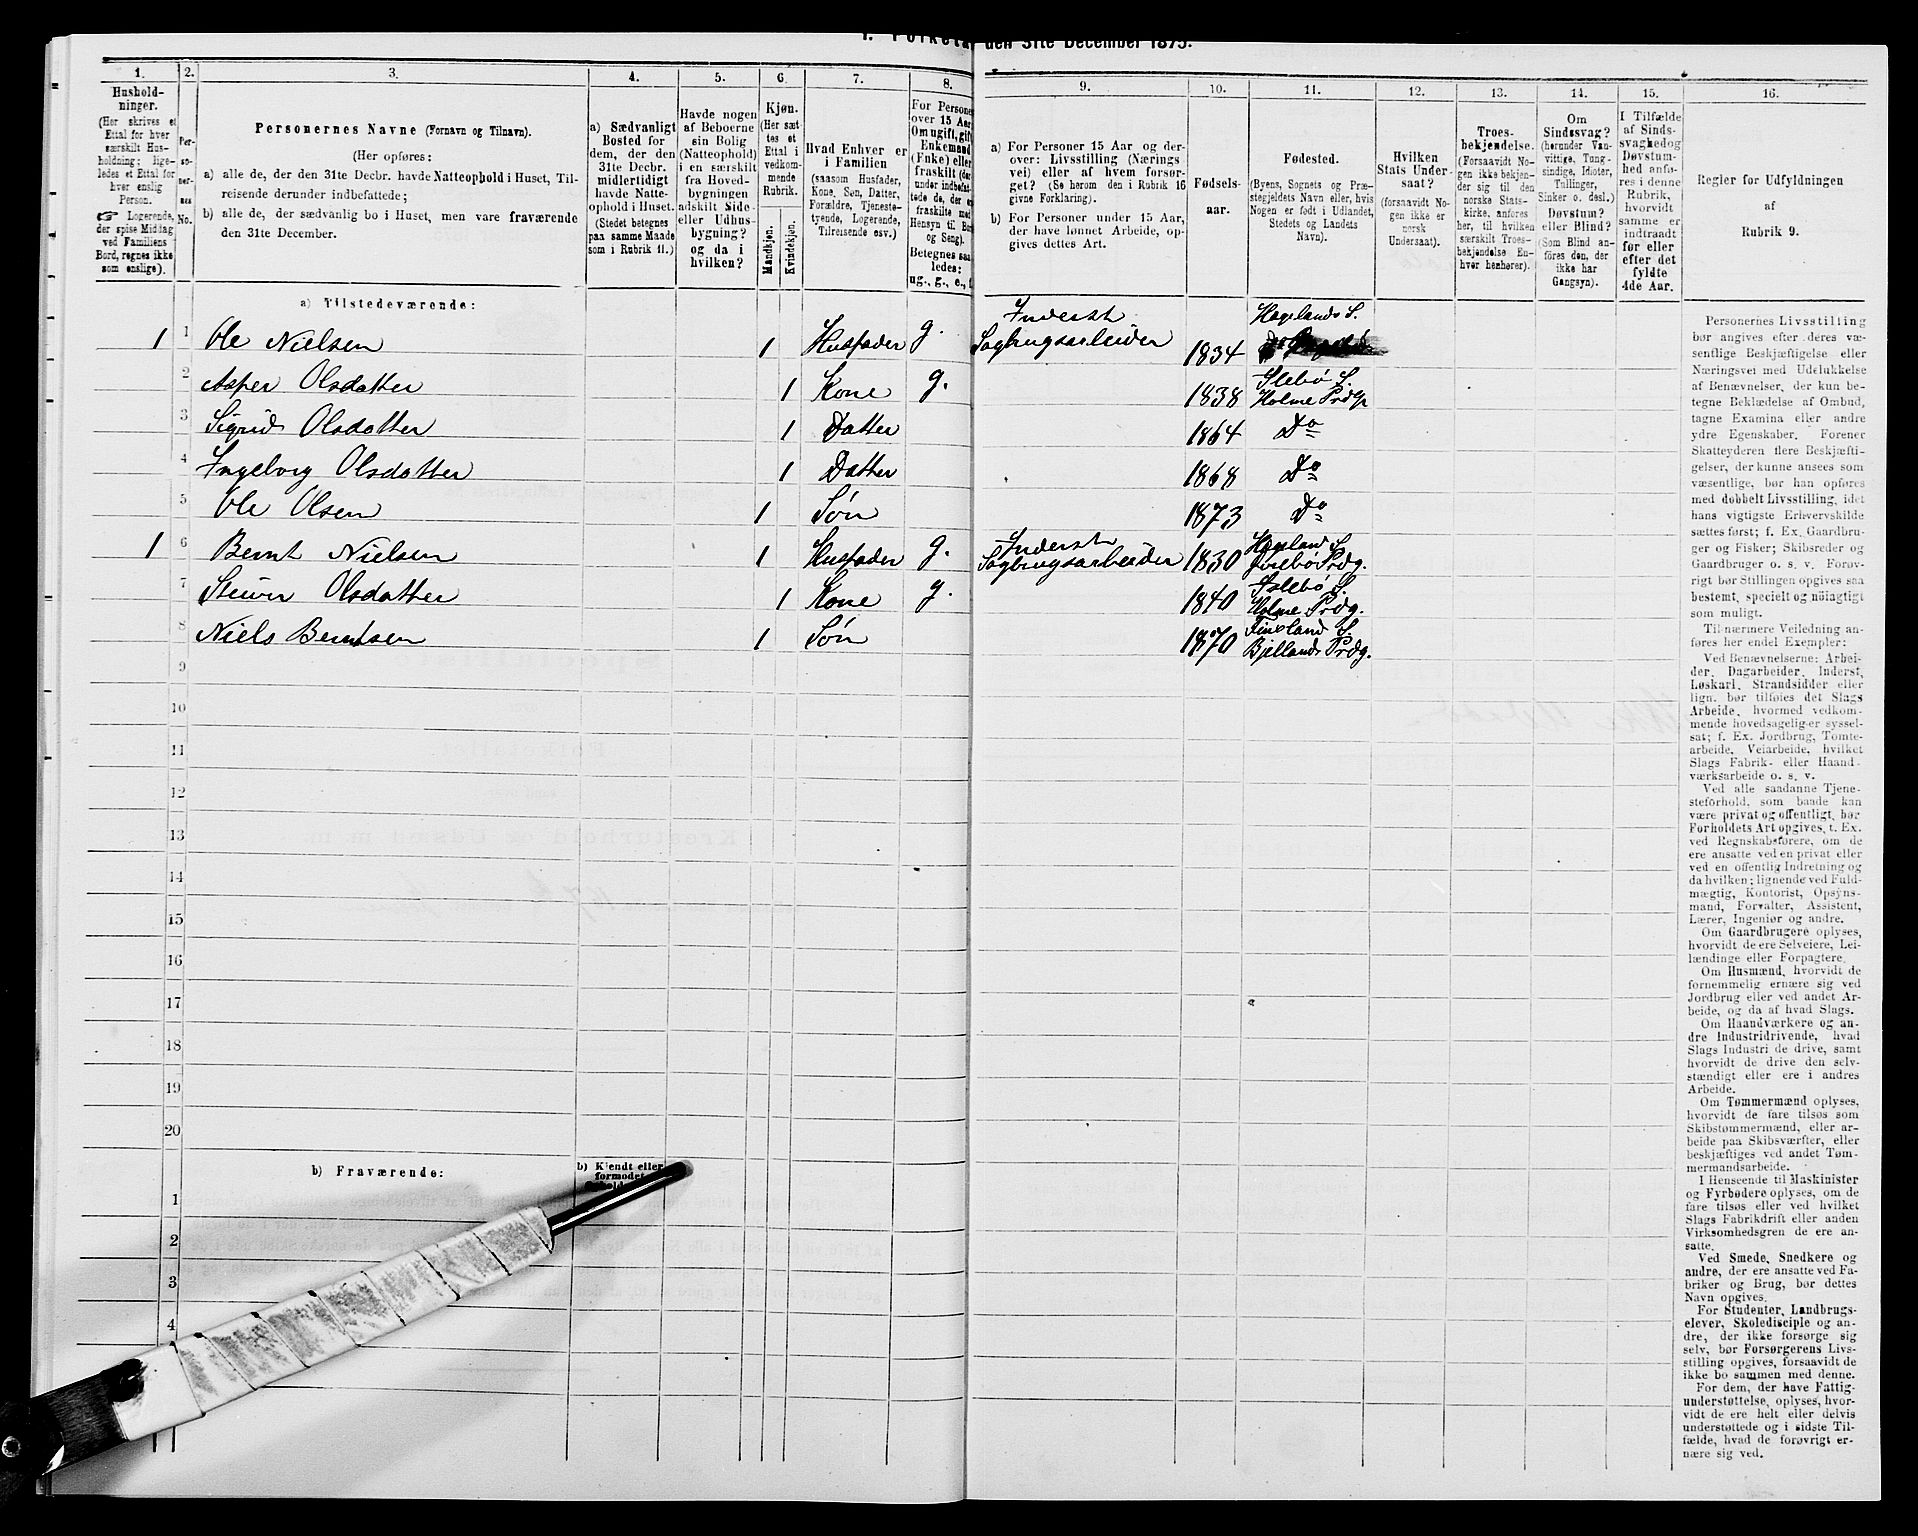 I. Folketæ
den 31te December 1875.
1.
Hushold-
ninger.
(Her skrives et
Ettal for hver
særskilt Hus-
holdning; lige-
ledes et Ettal for
hver enslig
Person.
Logerende,
der spise Middag
ved Familiens
Bord, regnes ikke
som enslige).
2.
Per-
so-
ner-
nes
No.
3.
Personernes Navne (Fornavn og Tilnavn).
(Her opføres:
a) alle de, der den 31te Decbr. havde Natteophold i Huset, Til-
reisende derunder indbefattede;
b) alle de, der sædvanlig bo i Huset, men vare fraværende
den 31te December.
4.
a) Sædvanligt
Bosted for
dem, der den
31te Decbr.
midlertidigt
havde Natte-
ophold i Huset.
(Stedet betegnes
paa samme Maade
som i Rubrik 11.)
5.
Havde nogen
af Beboerne
sin Bolig
(Natteophold)
i en særskilt
fra Hoved-
bygningen
adskilt Side-
eller Udhus-
bygning?
og da i
hvilken?
6.
Kjøn.
(Her sæt-
tes et
Ettal i
vedkom-
mende
Rubrik.
Mandkjøn.
Kvindekjøn.
7.
Hvad Enhver er
i Familien
(saasom Husfader,
Kone, Søn, Datter,
Forældre, Tjeneste-
tyende, Logerende,
Tilreisende osv.)
8.
For Persone
over 15 Aar
Om ugift, gift
Enkemand
(Enke) eller
fraskilt (der
under indbefat-
tede de, der ere
fraskilte med
Hensyn til Bord
og Seng).
Betegnes saa-
ledes:
ug., g., e., f.
9.
a) For Personer 15 Aar og der-
over: Livsstilling (Nærings
vei) eller af hvem forsør-
get? (Se herom den i Rubrik 16
givne Forklaring).
b) For Personer under 15 Aar,
der have lønnet Arbeide, op-
gives dettes Art.
10.
Fødsels-
aar.
11.
Fødested.
(Byens, Sognets og Præ-
stegjeldets Navn eller, hvis
Nogen er født i Udlandet,
Stedets og Landets
Navn).
12.
Hvilken
Stats Under-
saat?
(forsaavidt No-
gen ikke er
norsk
Undersaat).
13.
Troes-
bekjendelse.
(Forsaavidt No-
gen ikke bekjen-
der sig til den
norske Stats-
kirke, anføres
her, til hvilken
særskilt Troes-
bekjendelse En-
hver henhører).
14.
Om
Sindssvag?
(herunder Van-
vittige, Tung-
sindige, Idioter,
Tullinger,
Sinker o. desl.)
Døvstum?
eller Blind?
(Som Blind an-
føres den, der
ikke har
Gangsyn).
15.
I Tilfælde
af Sinds-
svaghed og
Døvstum-
hed anfø-
res i denne
Rubrik,
hvorvidt
samme er
indtraadt
før eller
efter det
fyldte
4de Aar.
16.
Regler for Udfyldningen
af
Rubrik 9.
a) Tilstedeværende:
1 1 Ole Nielsen 1 Husfader g. Inderst Sagbrugsarbeider 1834 Hægelands S.
2 Asper Olsdatter 1 Kone g. 1838 Islebø S. Holme Prdg
3 Sigrid Olsdatter 1 Datter 1864 Do
4 Ingeborg Olsdatter 1 Datter 1868 Do
5 Ole Olsen 1 Søn 1873 Do
1 6 Bernt Nielsen 1 Husfader g. Inderst Sagbrugsarbeider 1830 Hægeland S. Prdg.
7 Olsdatter 1 Kone g. 1840 Islebø S. Holme Prdg.
8 Niels Berntsen 1 Søn 1870 Finsland S. Bjellands Prdg.
9
10
11
12
13
14
15
16
17
18
19
20
b) Fraværende:
b) Kjendt eller
formodet
1
2
3
4
Personernes Livsstilling
bør angives efter deres væ-
sentlige Beskjæftigelse eller
Næringsvei med Udelukkelse
af Benævnelser, der kun be-
tegne Beklædelse af Ombud,
tagne Examina eller andre
ydre Egenskaber. Forener
Skatteyderen flere Beskjæfti-
gelser, der kunne ansees som
væsentlige, bør han opføres
med dobbelt Livsstilling, idet
hans vigtigste Erhvervskilde
sættes først; f. Ex. Gaardbru-
ger og Fisker; Skibsreder og
Gaardbruger o. s. v. Forøv-
rigt bør Stillingen opgives saa
bestemt, specielt og nøiagtigt
som muligt.
Til nærmere Veiledning an-
føres her endel Exempler:
Ved Benævnelserne: Arbei-
der, Dagarbeider, Inderst,
Løskarl, Strandsidder eller
lign. bør tilføies det Slags
Arbeide, hvormed vedkom-
mende hovedsagelig er syssel-
sat; f. Ex. Jordbrug, Tomte-
arbeide, Veiarbeide, hvilket
Slags Fabrik- eller Haand-
værksarbeide o. s. v.
Ved alle saadanne Tjene-
steforhold, som baade kan
være privat og offentligt, bør
Forholdets Art opgives, t. Ex.
ved Regnskabsførere, om de
ere ansatte ved en privat eller
ved en offentlig Indretning og
da hvilken; lignende ved Fuld-
mægtig, Kontorist, Opsyns-
mand, Forvalter, Assistent,
Lærer, Ingeniør og andre.
Om Gaardbrugere oplyses,
hvorvidt de ere Selveiere, Lei-
lændinge eller Forpagtere.
Om Husmænd, hvorvidt de
fornemmelig ernære sig ved
Jordbrug eller ved andet Ar-
beide, og da af hvad Slags.
Om Haandværkere og an-
dre Industridrivende, hvad
Slags Industri de drive, samt
hvorvidt de drive den selv-
stændigt eller ere i andres
Arbeide.
Om Tømmermænd oplyses,
hvorvidt de fare tilsøs som
Skibstømmermænd, eller ar-
beide paa Skibsværfter, eller
beskjæftiges ved andet Tøm-
mermandsarbeide.
I Henseende til Maskinister
og Fyrbødere oplyses, om de
fare tilsøs eller ved hvilket
Slags Fabrikdrift eller anden
Virksomhedsgren de ere an-
satte.
Ved Smede, Snedkere og
andre, der ere ansatte ved Fa-
briker og Brug, bør dettes
Navn opgives.
For Studenter, Landbrugs-
elever, Skoledisciple og an-
dre, der ikke forsørge sig
selv, bør Forsørgerens Livs-
stilling opgives, forsaavidt de
ikke bo sammen med denne.
For dem, der have Fattig-
understøttelse, oplyses, hvor-
vidt de ere helt eller delvis
understøttede og i sidste Til-
fælde, hvad de forøvrigt er-
nære sig ved.